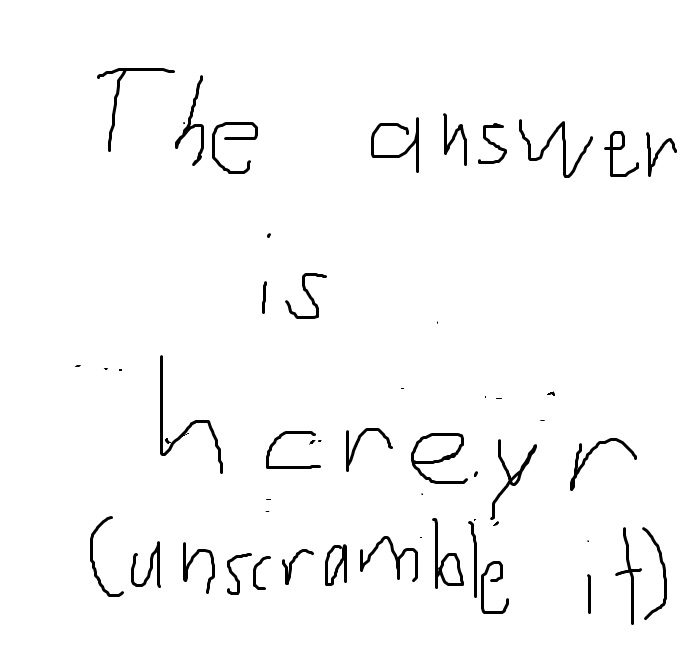 The answer
is
hcreyr
(unscramble it)